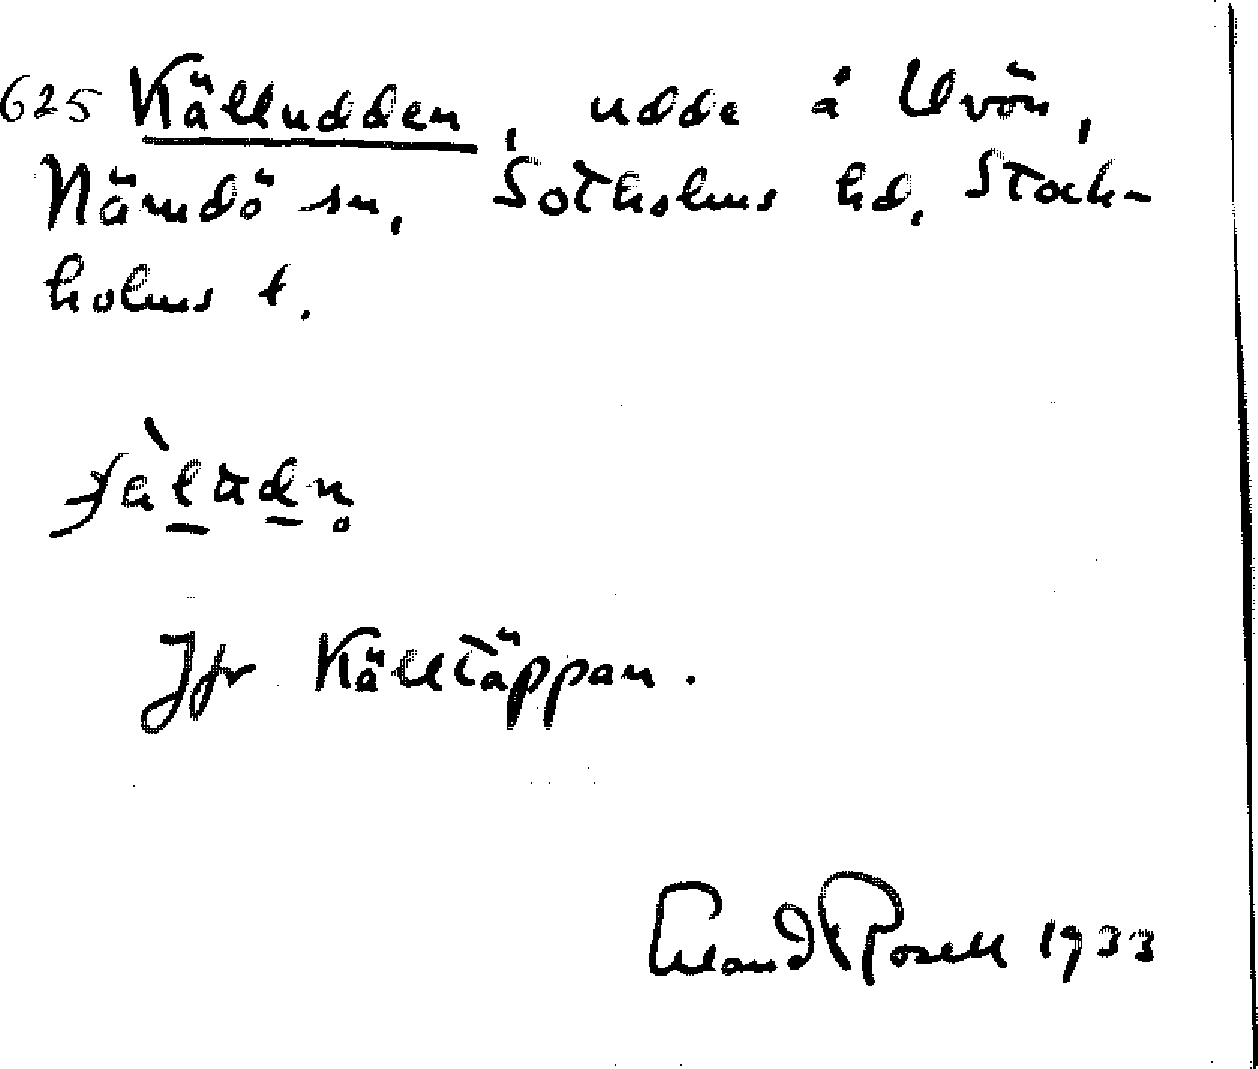 625 Källudden, udde å Uvön,
Nämdö sn, Sotholms hd, Stock-
holms l.
Jfr Källtäppan.
Erland Rosell 1933